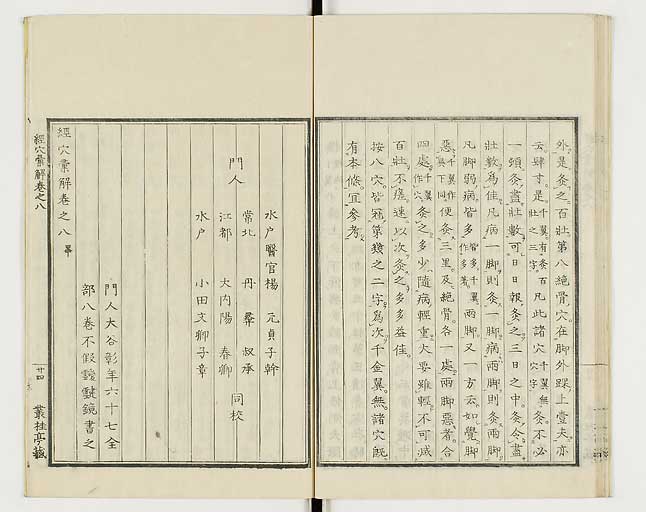 外是灸之百壯第八絕骨穴在脚外踝上壹夫亦
云肆寸是千翼有灸百壯之三字凡此諸穴千翼無穴字灸不必
一頓灸盡壯數可日日報灸之三日之中灸令盡
壯數爲佳凡病一脚則灸一脚病兩脚則灸兩脚
凡脚弱病皆多皆多千翼作多著兩脚又一方云如覺脚
惡千翼作異下同便灸三里及絕骨各一處兩脚惡者合
四處千翼作穴灸之多少隨病輕重大要雖輕不可減
百壯不瘥速以次灸之多多益佳
按八穴皆冠第幾之二字爲次千金翼無諸穴旣
有本條宜參考
門人
水戶醫官楊 元貞子幹
常北 丹 彝 叔承
江都 大內陽 春卿 同校
水戶 小田文卿子章
經穴彙解卷之八畢
門人大谷彰年六十七全
部八卷不假靉靆鏡書之
經穴彙解卷之八
廿四
叢桂亭藏